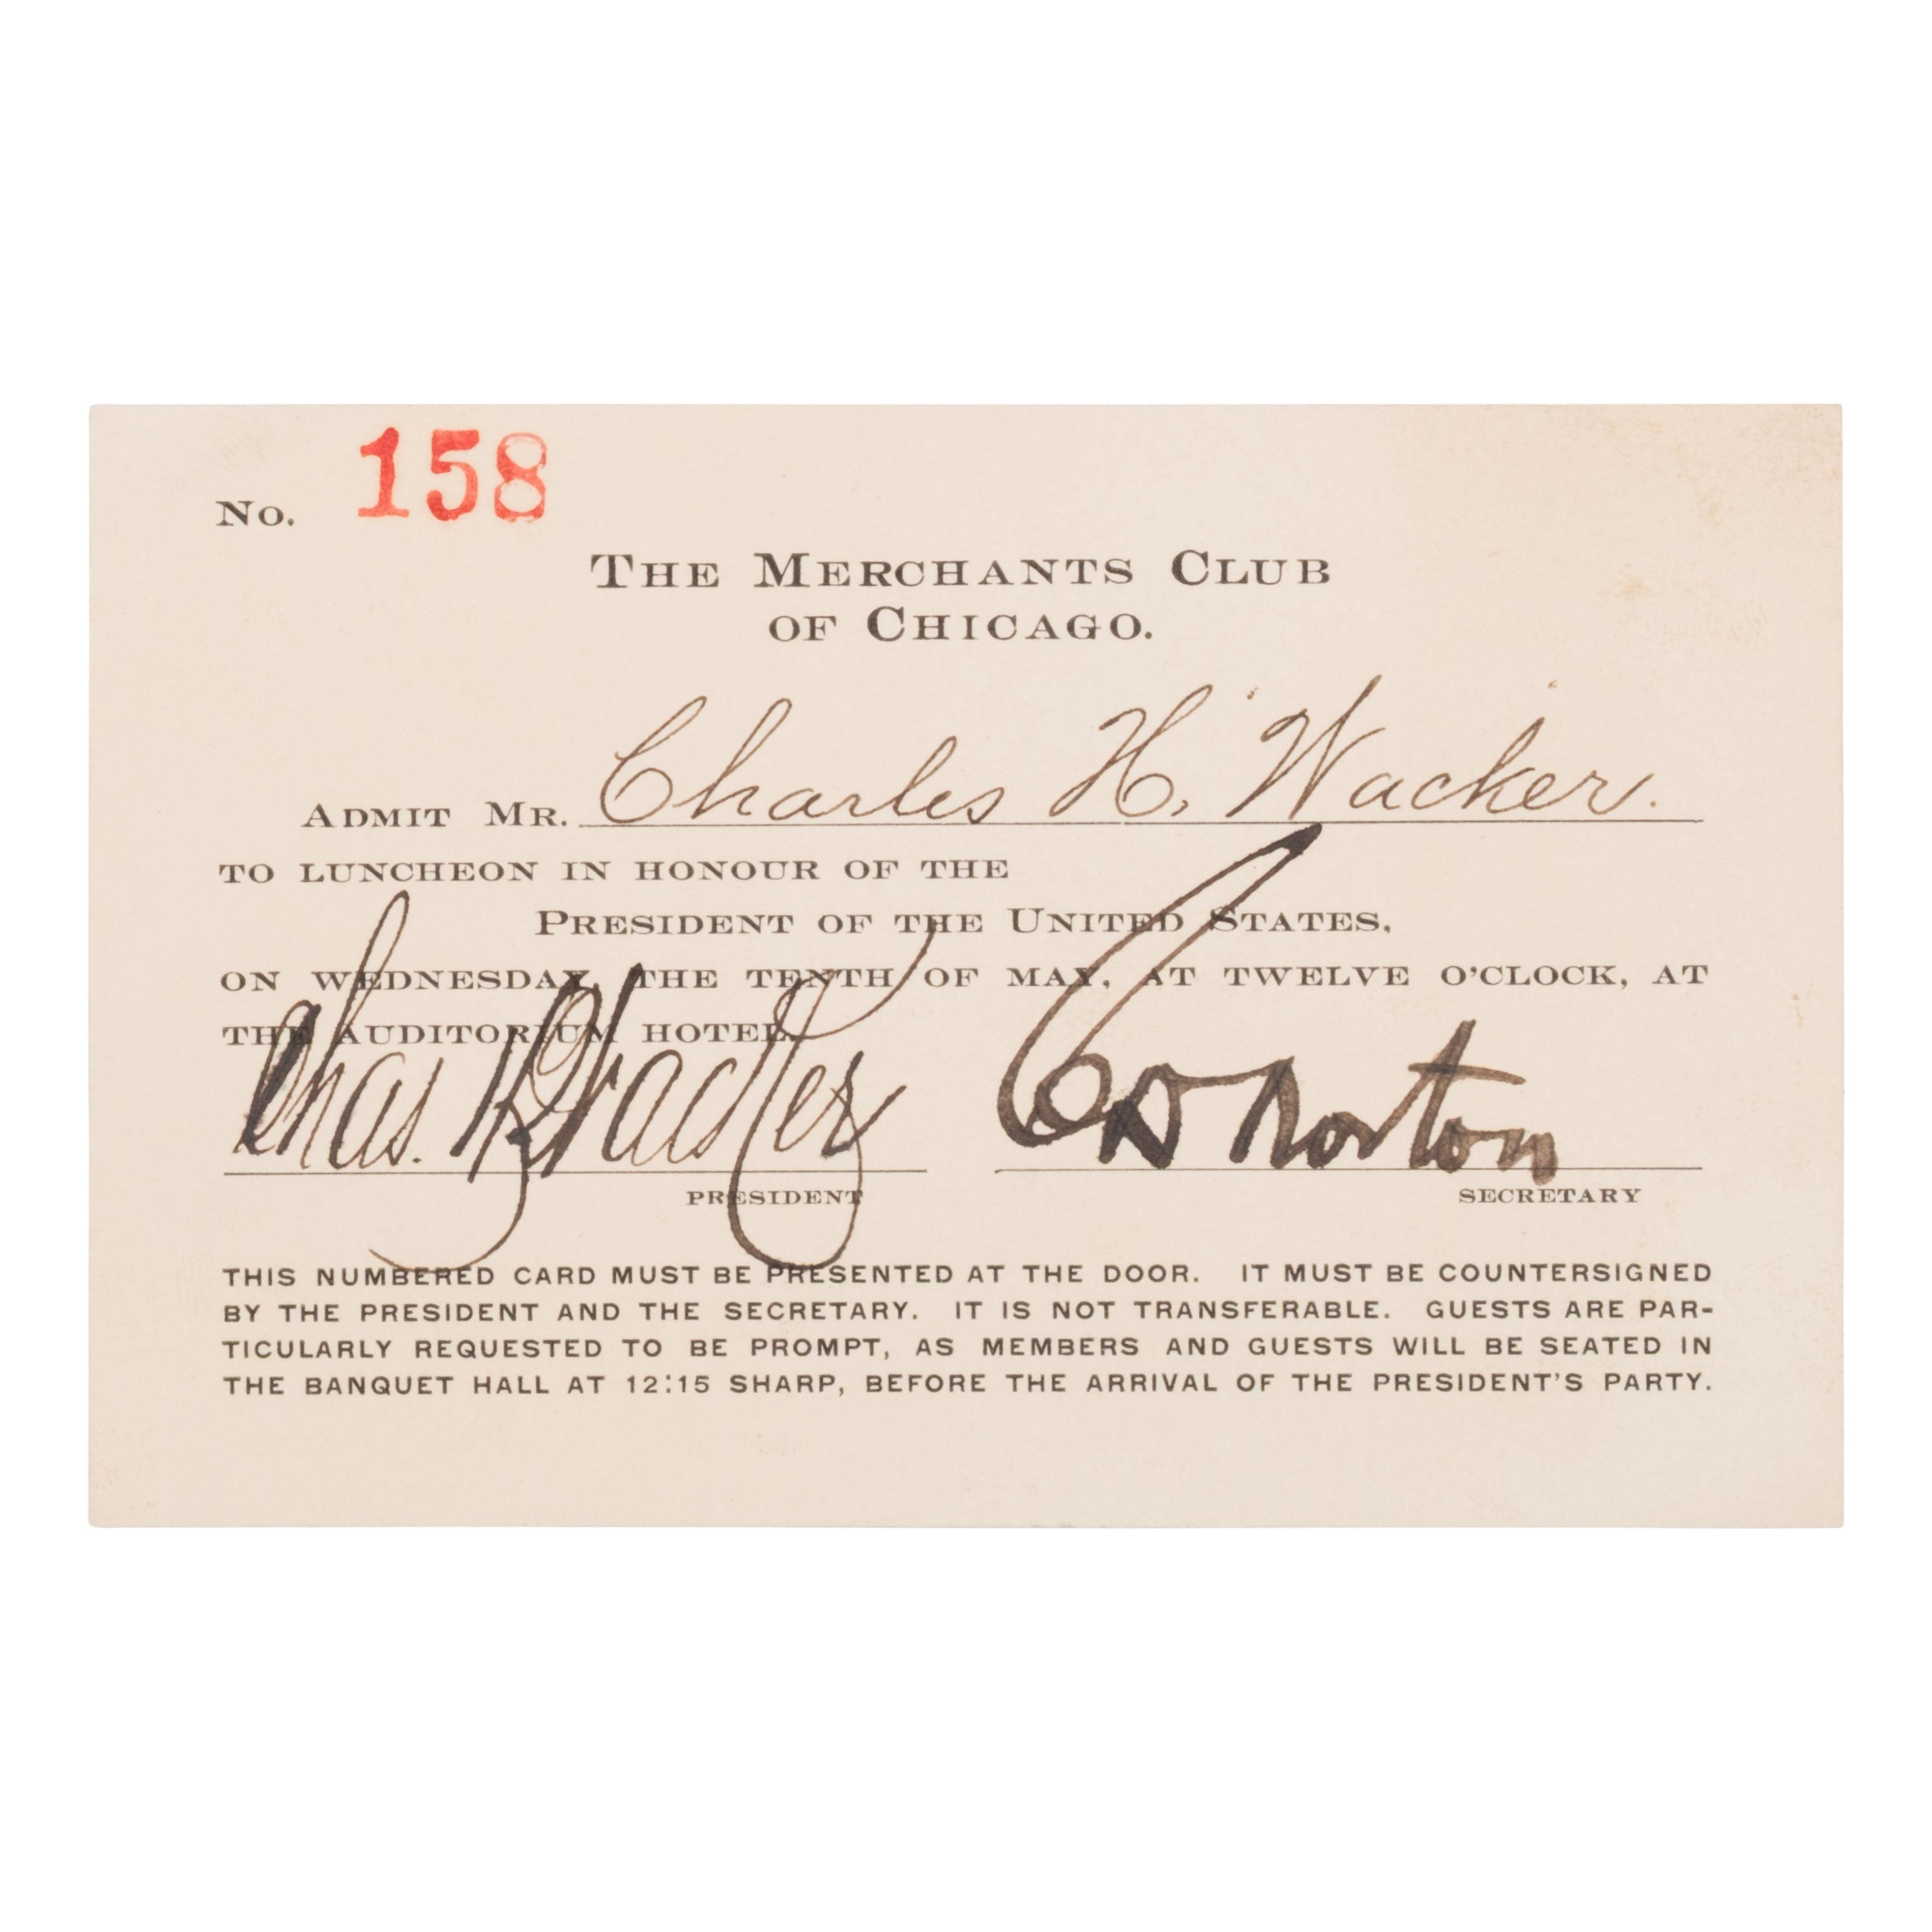 No. 158
THE MERCHANTS CLUB
OF CHICAGO.
ADMIT MR. Charles H. Wacker.
TO LUNCHEON IN HONOUR OF THE
PRESIDENT OF THE UNITED STATES,
ON WEDNESDAY, THE TENTH OF MAY, AT TWELVE O'CLOCK, AT
THE AUDITORIUM HOTEL.
Chas.
C D Norton
PRESIDENT
SECRETARY
THIS NUMBERED CARD MUST BE PRESENTED AT THE DOOR. IT MUST BE COUNTERSIGNED
BY THE PRESIDENT AND THE SECRETARY. IT IS NOT TRANSFERABLE. GUESTS ARE PAR-
TICULARLY REQUESTED TO BE PROMPT, AS MEMBERS AND GUESTS WILL BE SEATED IN
THE BANQUET HALL AT 12:15 SHARP, BEFORE THE ARRIVAL OF THE PRESIDENT'S PARTY.